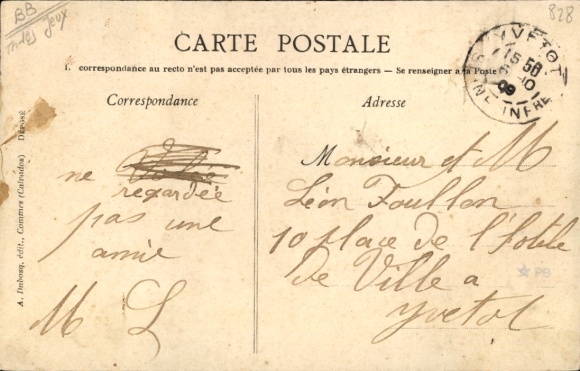 BB
jeux
828
CARTE POSTALE
La correspondance au recto n'est pas acceptée par tous les pays étrangers — Se renseigner à la Poste
YVETOT
15 50
09
INE INFRE
Correspondance
Adresse
ne
regardée
pas une
amie
M L
Monsieur et M
Léon Foullon
10 place de l'Hotel
De Ville a
Yvetot
PB
A. Dubosq, édit., Commes (Calvados) DÉPOSÉ